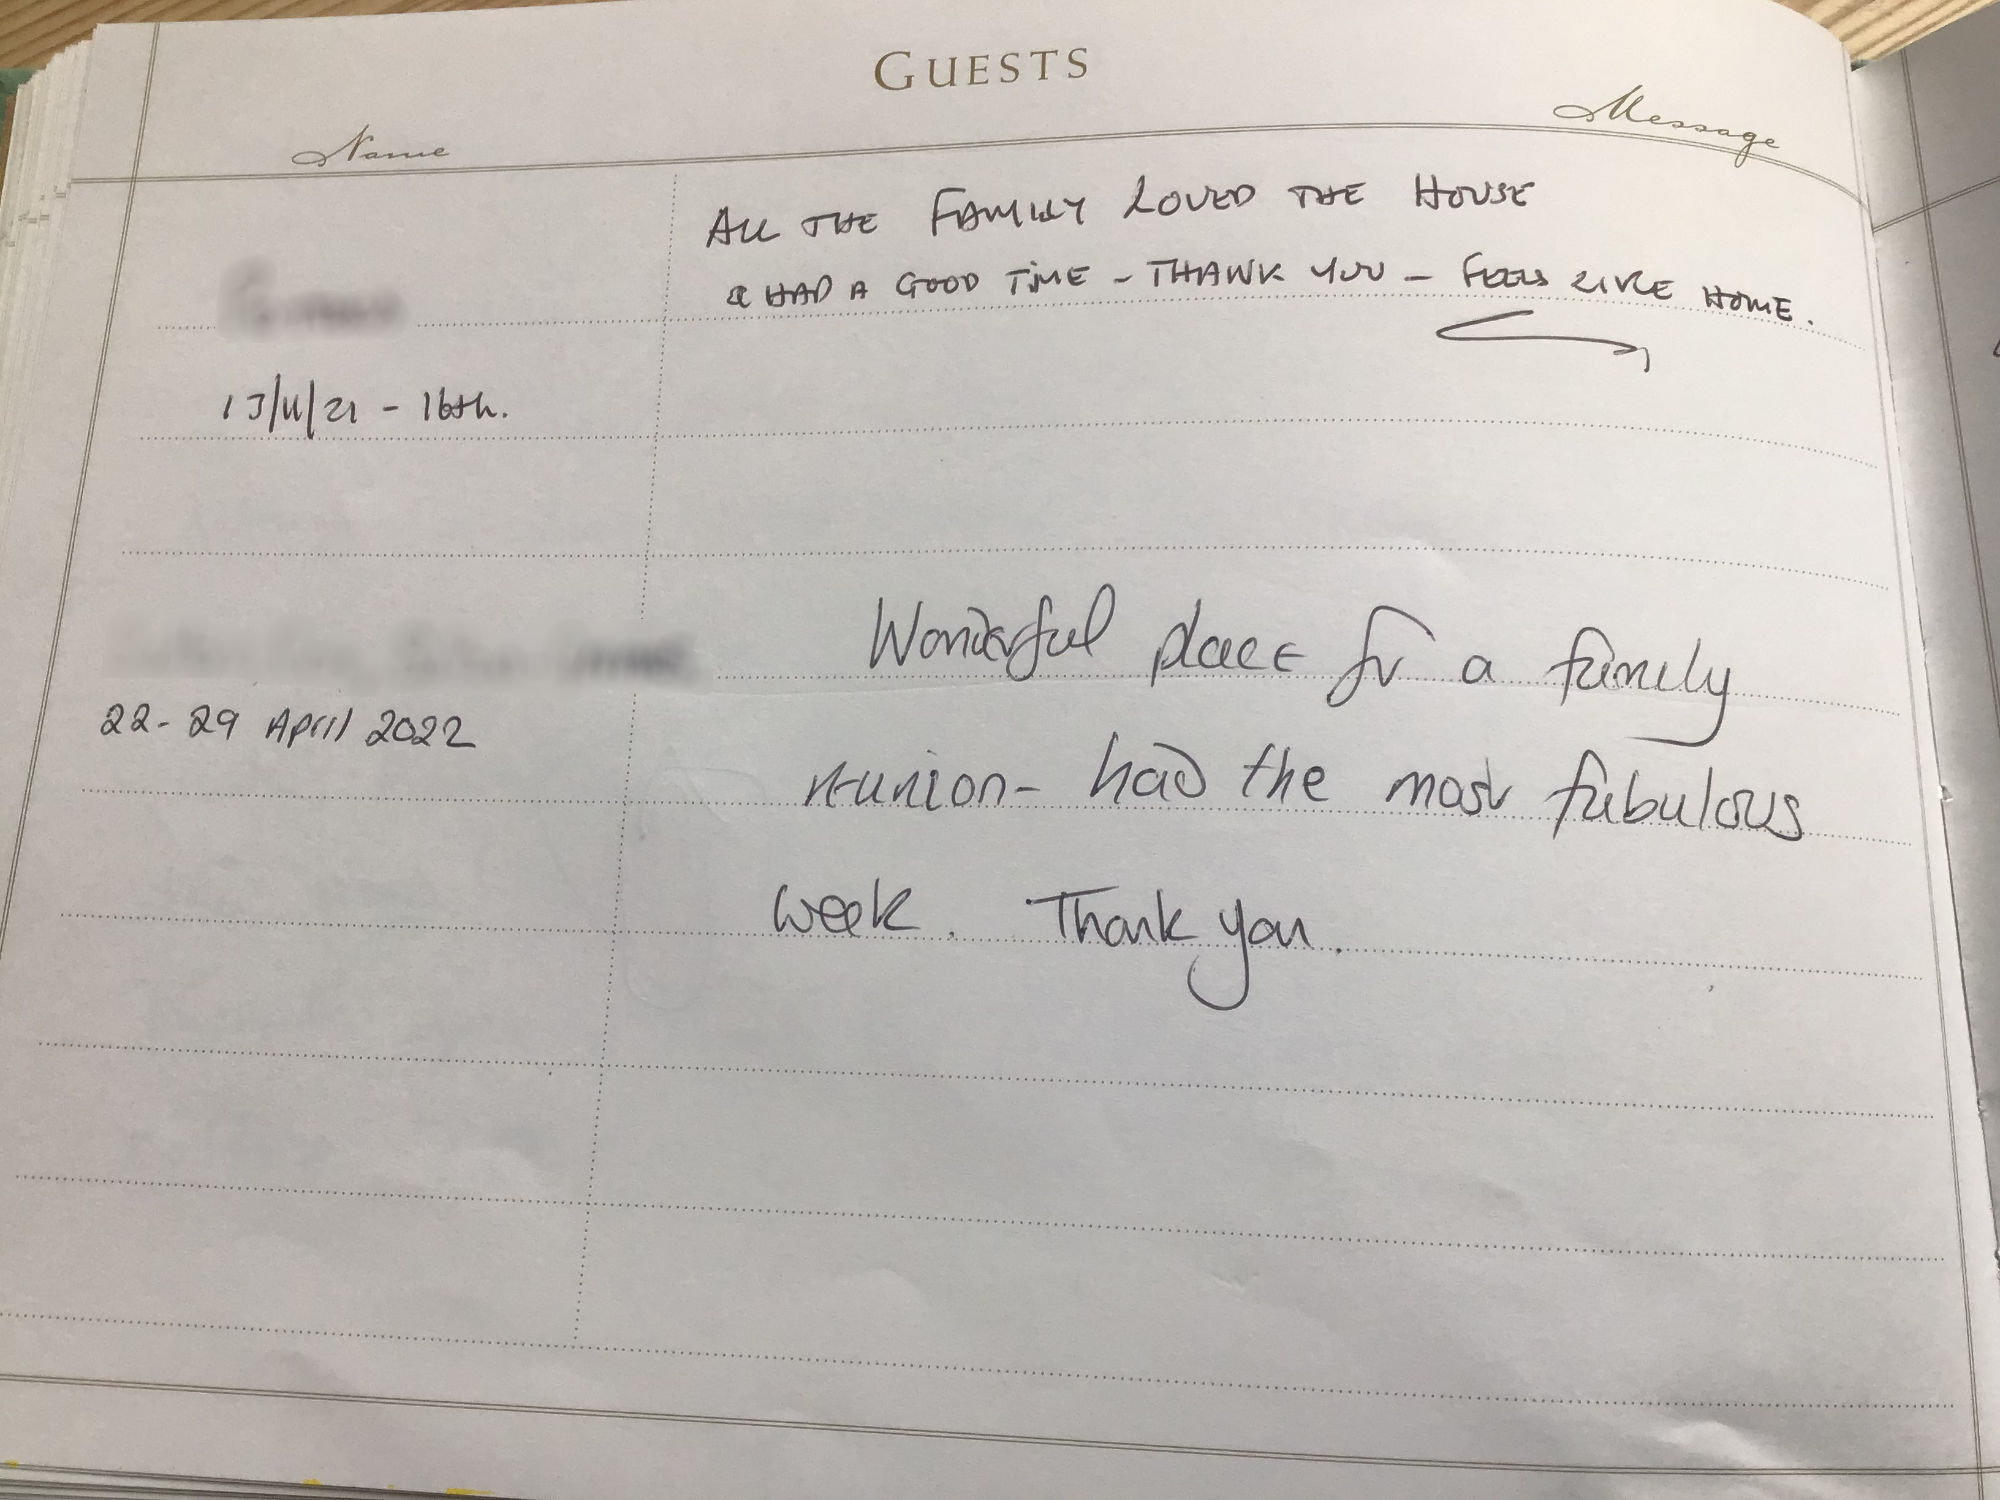 GUESTS
Name
Message
ALL THE FAMILY LOVED THE HOUSE
& HAD A GOOD TIME - THANK YOU - FEELS LIKE HOME.
13/11/21 - 16th.
Wonderful place for a family
22-29 April 2022
reunion - had the most fabulous
week. Thank you.